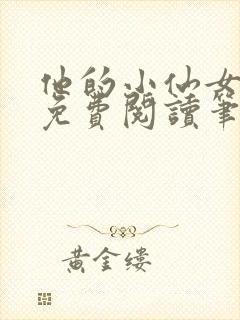 他的小仙女
免費閱讀筆
黃金縷